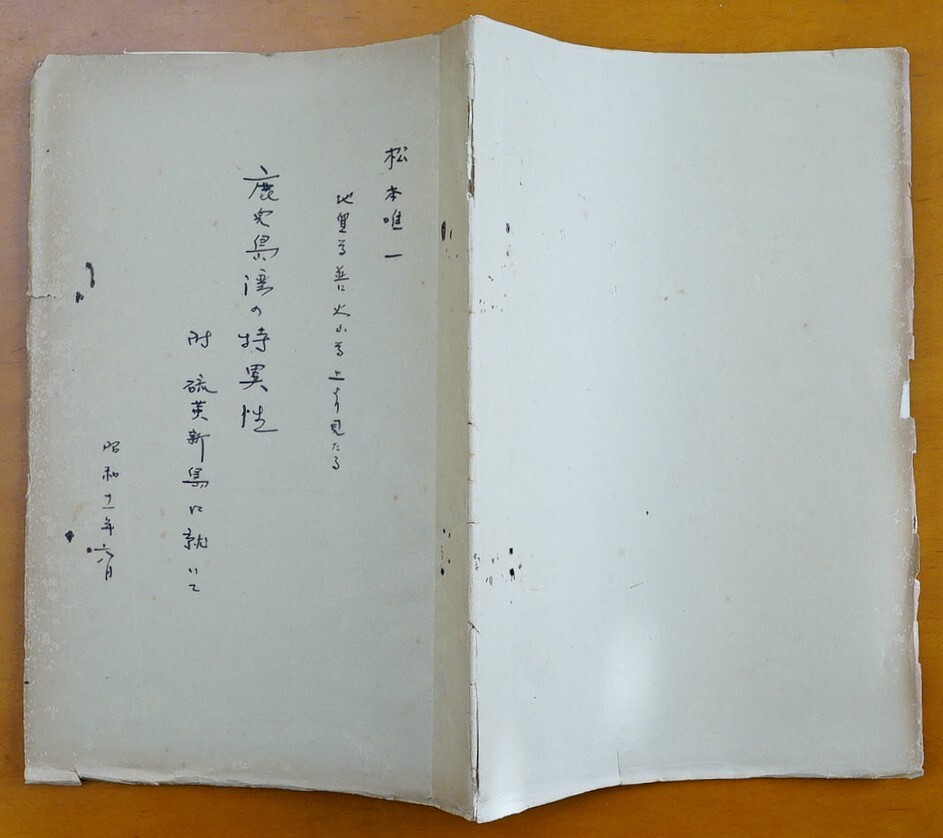 松本唯一
地質学並火山学上より見たる
鹿児島湾の特異性
附 硫黄新島に就いて
昭和十一年六月